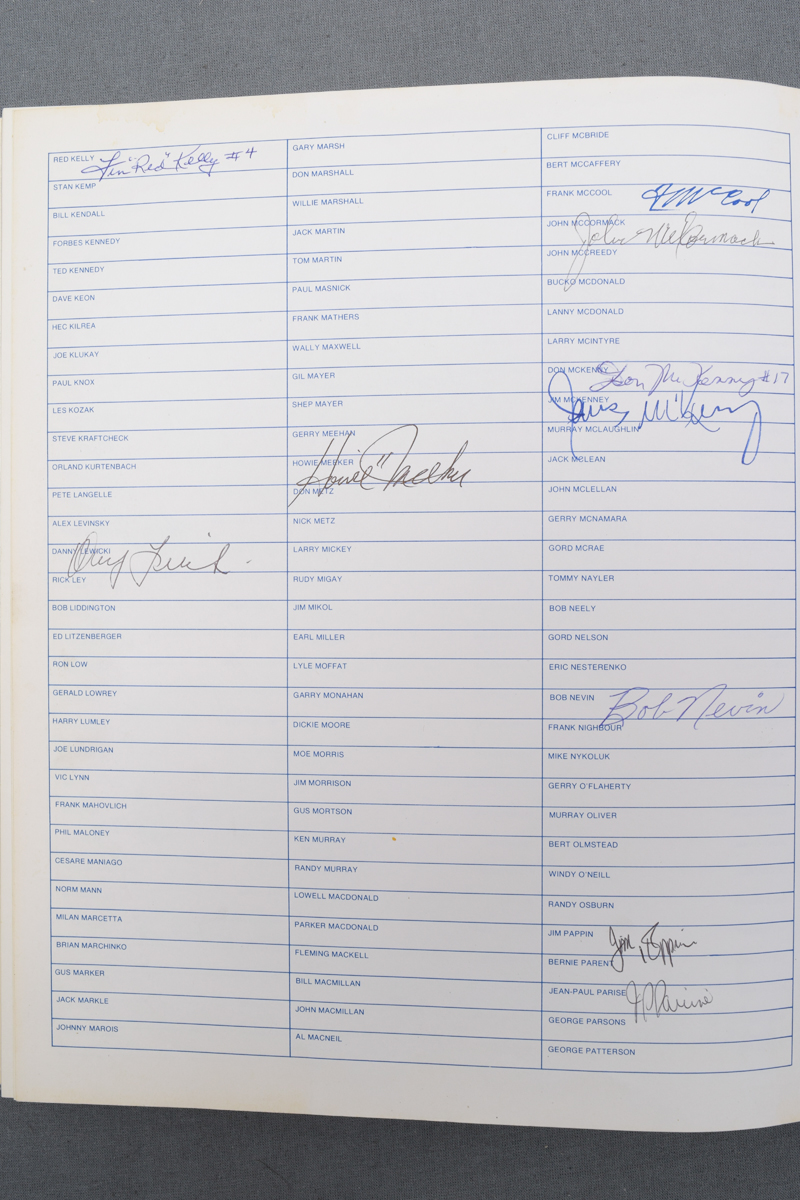 RED KELLY Len "Red" Kelly #4
STAN KEMP
BILL KENDALL
FORBES KENNEDY
TED KENNEDY
DAVE KEON
HEC KILREA
JOE KLUKAY
PAUL KNOX
LES KOZAK
STEVE KRAFTCHECK
ORLAND KURTENBACH
PETE LANGELLE
ALEX LEVINSKY
DANNY LEWICKI
RICK LEY
BOB LIDDINGTON
ED LITZENBERGER
RON LOW
GERALD LOWREY
HARRY LUMLEY
JOE LUNDRIGAN
VIC LYNN
FRANK MAHOVLICH
PHIL MALONEY
CESARE MANIAGO
NORM MANN
MILAN MARCETTA
BRIAN MARCHINKO
GUS MARKER
JACK MARKLE
JOHNNY MAROIS
GARY MARSH
DON MARSHALL
WILLIE MARSHALL
JACK MARTIN
TOM MARTIN
PAUL MASNICK
FRANK MATHERS
WALLY MAXWELL
GIL MAYER
SHEP MAYER
GERRY MEEHAN
HOWIE MEEKER Howie Meeker
DON METZ
NICK METZ
LARRY MICKEY
RUDY MIGAY
JIM MIKOL
EARL MILLER
LYLE MOFFAT
GARRY MONAHAN
DICKIE MOORE
MOE MORRIS
JIM MORRISON
GUS MORTSON
KEN MURRAY
RANDY MURRAY
LOWELL MACDONALD
PARKER MACDONALD
FLEMING MACKELL
BILL MACMILLAN
JOHN MACMILLAN
AL MACNEIL
CLIFF MCBRIDE
BERT MCCAFFERY
FRANK MCCOOL F McCool
JOHN MCCORMACK John McCormack
JOHN MCCREEDY
BUCKO MCDONALD
LANNY MCDONALD
LARRY MCINTYRE
DON MCKENNY Don McKenny #17
JIM MCKENNEY James McKenny
MURRAY MCLAUGHLIN
JACK MCLEAN
JOHN MCLELLAN
GERRY MCNAMARA
GORD MCRAE
TOMMY NAYLER
BOB NEELY
GORD NELSON
ERIC NESTERENKO
BOB NEVIN Bob Nevin
FRANK NIGHBOUR
MIKE NYKOLUK
GERRY O'FLAHERTY
MURRAY OLIVER
BERT OLMSTEAD
WINDY O'NEILL
RANDY OSBURN
JIM PAPPIN Jim Pappin
BERNIE PARENT
JEAN-PAUL PARISE JP Parisé
GEORGE PARSONS
GEORGE PATTERSON